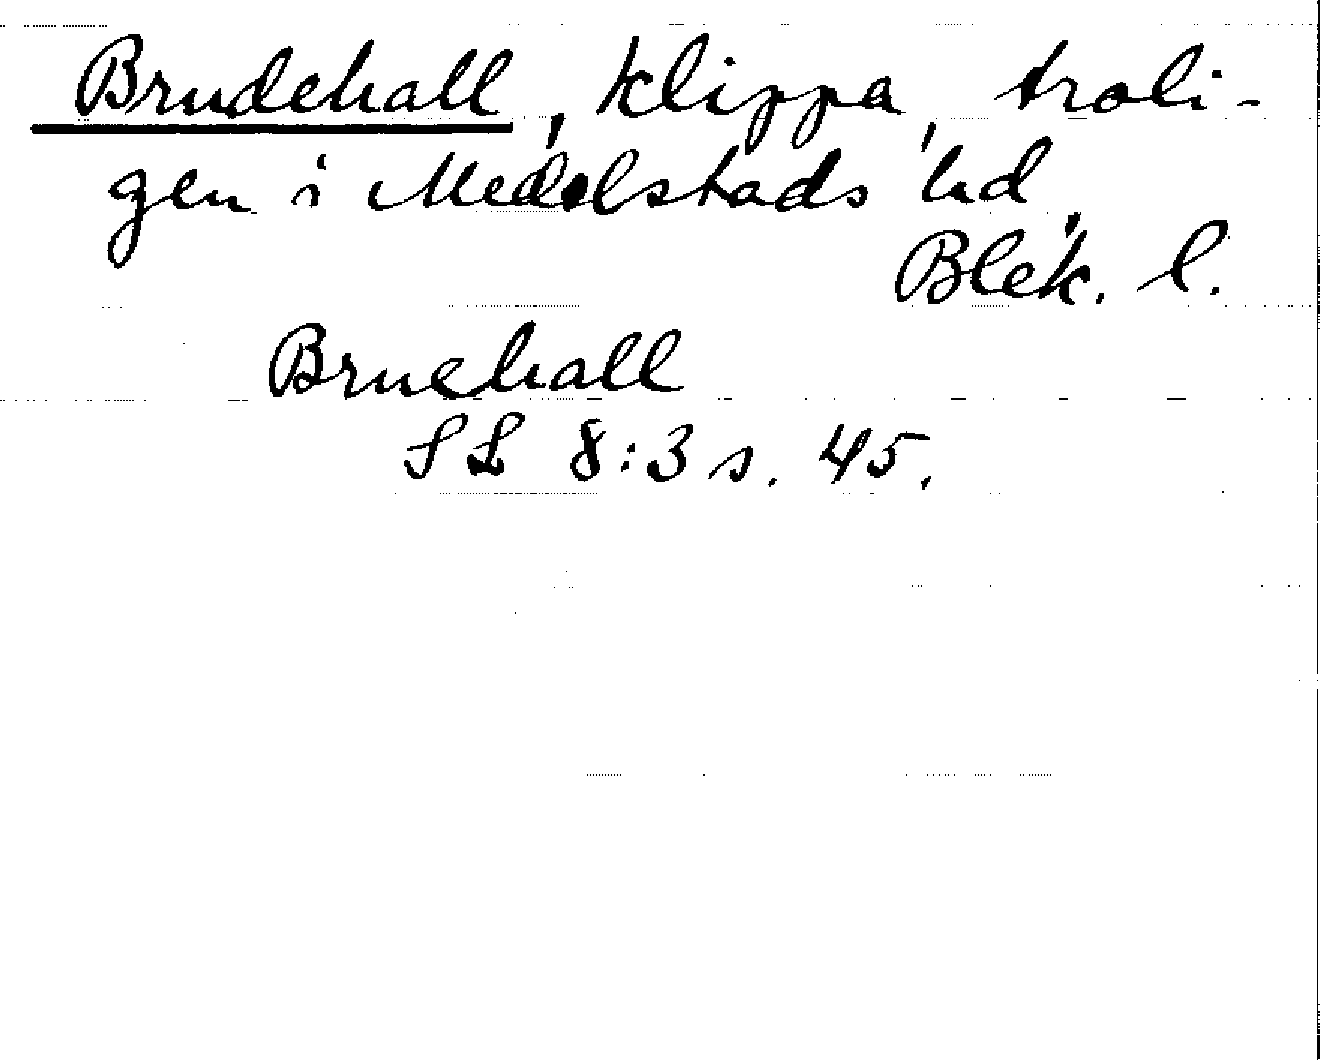 Brudehall, klippa, troli-
gen i Medelstads hd,
Blek. l.
Bruehall
SL 8:3 s. 45.